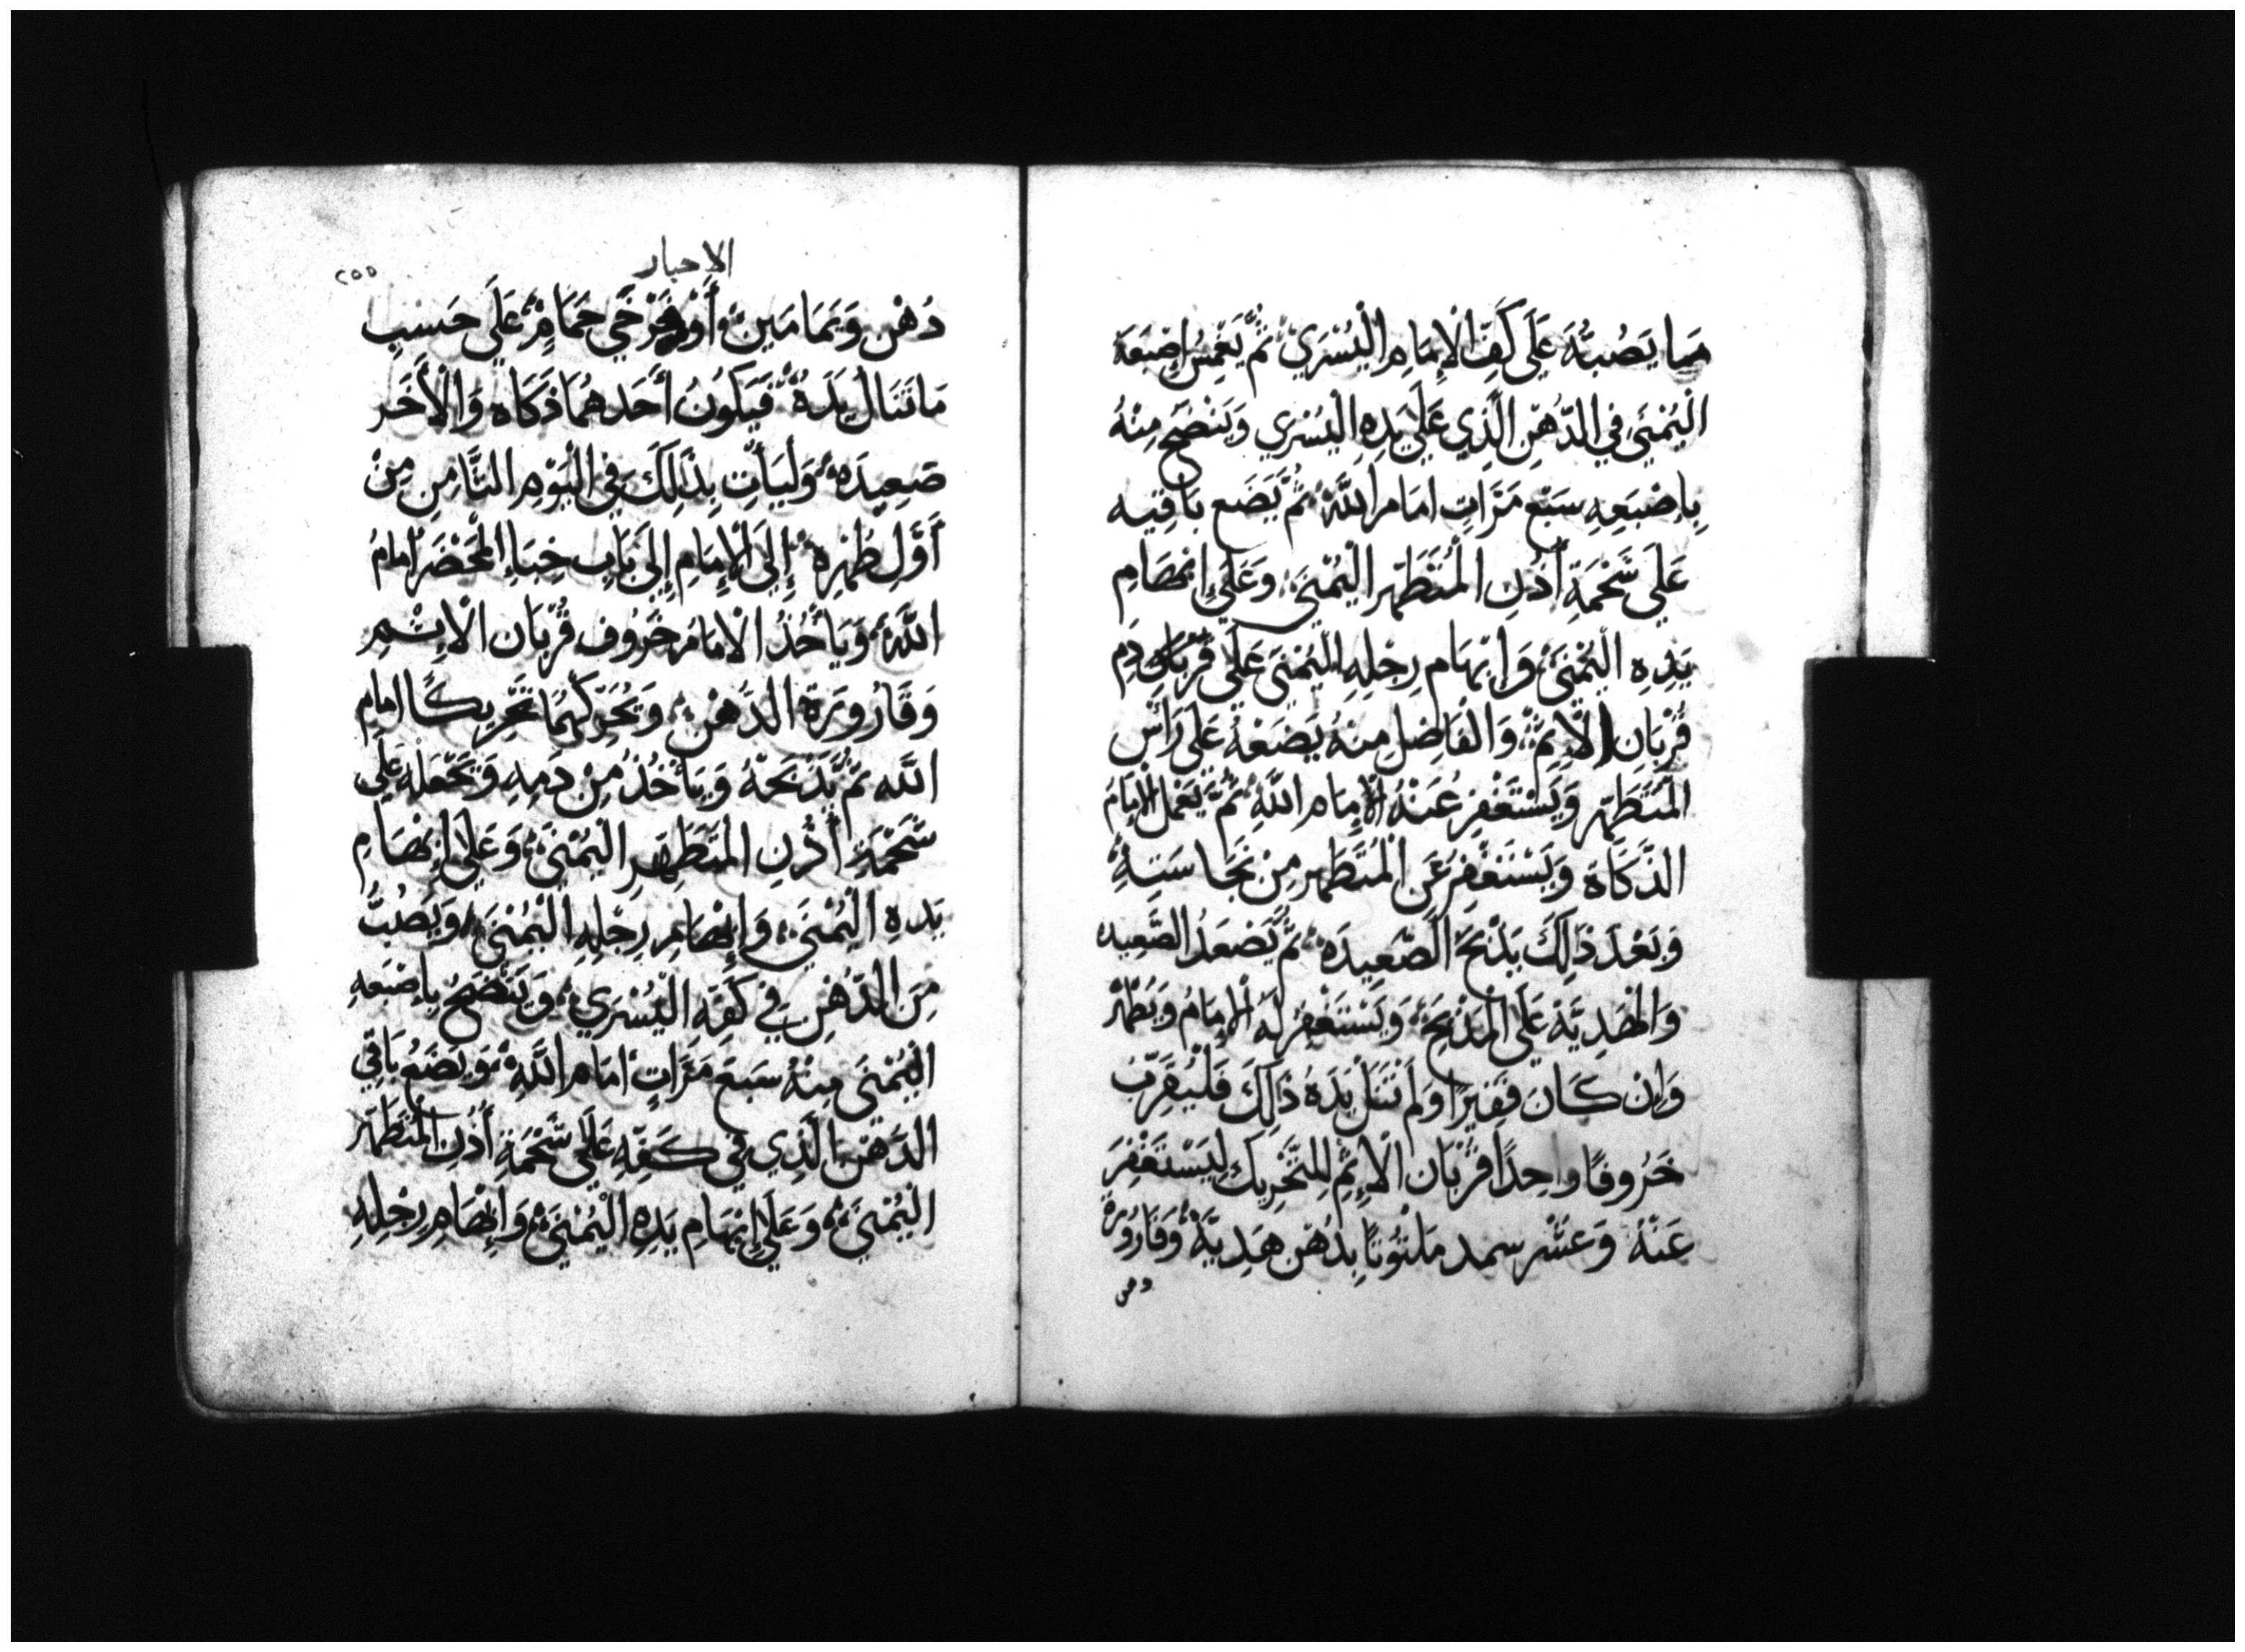 مما يَصُبُّهُ عَلَى كَفِّ الْإِمَامِ الْيُسْرَي ثُمَّ يَغْمِسُ إِصْبَعَهُ
الْيُمْنَى فِي الدُّهْنِ الَّذِي عَلَى يَدِهِ الْيُسْرَي وَيَنْضَحُ مِنْهُ
بِإِصْبَعِهِ سَبْعَ مَرَّاتٍ امَامَ اللَّهِ ثُمَّ يَضَع بَاقِيه
عَلَى شَحْمَةِ أُذُنِ الْمُتَطَهِّر الْيُمْنَى وَعَلَى إِبْهَامِ
يَدِهِ الْيُمْنَى وَإِبْهَام رِجْلِهِ الْيُمْنَى عَلَى قُرْبَان دَمِ
قُرْبَانِ الْإِثْمِ وَالْفَاضِل مِنْهُ يَضَعَهُ عَلَى رَأْسِ
الْمُتَطَهِّر وَيَسْتَغْفِرُ عَنْهُ الْإِمَام امَام اللَّهِ ثُمَّ يَعْمَل الْإِمَامُ
الذَّكَاةَ وَيَسْتَغْفِرُ عَنِ الْمُتَطَهِّر مِنْ نَجَاسَتِهِ
وَبَعْدَ ذَلِكَ يَذْبَحُ الصَّعِيدَه ثُمَّ يُصْعَدُ الصَّعِيده
وَالْهَدِيَّة عَلَى الْمَذْبَحِ وَيَسْتَغْفِرُ لَهُ الْإِمَامُ وَيَطْهُرُ
وَإِن كَانَ فَقِيرًا وَلَمْ تَنَل يَدَهُ ذَلِكَ فَلْيُقَرِّب
خَرُوفًا واحِدًا قُرْبَان الْإِثْمِ لِلتَّحْرِيك لِيَسْتَغْفِرَ
عَنْهُ وَعُشْر سمد مَلْتُوتًا بِدُهْن هَدِيَّةً وَقَارُورَة
دهن
الاحبار
٢٥٥
دُهْن وَيَمَامَيْنِ أَوْ فَرْخَي حَمَامٍ عَلَى حَسَبِ
مَا تَنَال يَدَهُ فَيَكُونُ أَحَدهُمَا ذَكَاه وَالْأَخَر
صَعِيدَه وَلْيَأْتِ بِذَلِكَ فِي الْيَوْمِ الثَّامِنِ مِنْ
أَوَّلِ طُهْرِهِ إِلَى الْإِمَامِ إِلَى بَابِ خِبَاءِ الْمَحْضَر امَامَ
اللَّهِ وَيَأْخُذُ الْامَامُ خَرُوف قُرْبَان الْإِثْمِ
وَقَارُورَةَ الدُّهْنِ وَيُحَرِّكَهُمَا تَحْرِيكًا امام
اللَّه ثُمَّ يَذْبَحَهُ وَيَأْخُذُ مِنْ دَمِهِ وَيَجْعَلهُ عَلَى
شَحْمَةِ أُذُنِ الْمُتَطَهِّرِ الْيُمْنَى وَعَلَى إِبْهَامِ
يَدِهِ الْيُمْنَى وَإِبْهَامِ رِجْلِهِ الْيُمْنَى وَيَصُبُّ
مِنَ الدُّهْنِ فِي كَفِّهِ الْيُسْرَي وَيَنْضَحُ بِإِصْبَعِهِ
الْيُمْنَى مِنْهُ سَبْعَ مَرَّاتٍ امَامَ اللَّهِ وَيَضَعُ بَاقِي
الدُّهْن الَّذِي فِي كَفِّهِ عَلَى شَحْمَةِ أُذُنِ الْمُتَطَهِّر
الْيُمْنَى وَعَلَى إِبْهَامِ يَدِهِ الْيُمْنَى وَإِبْهَامِ رِجْلِهِ